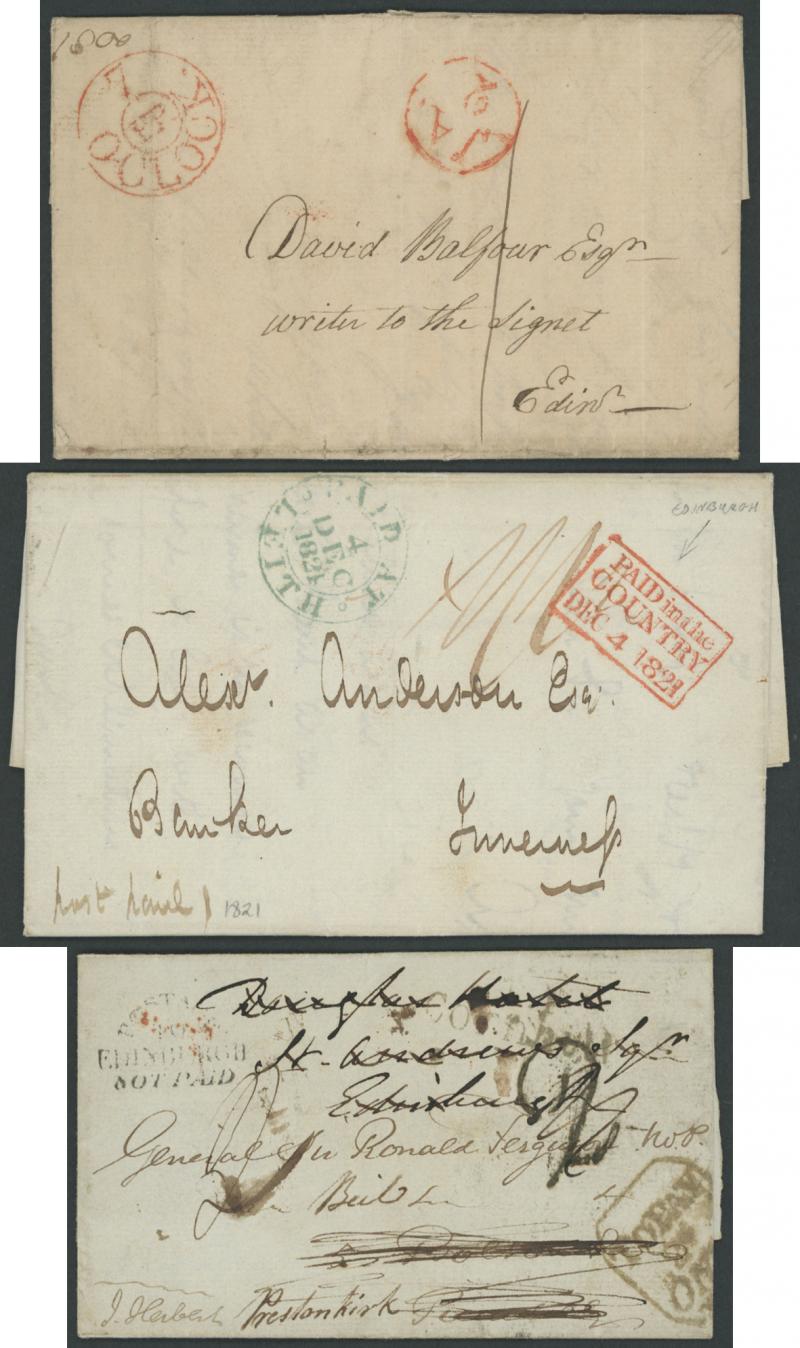 1800
7
O·CLOCK
David Balfour Esqr.
writer to the Signet
Edinr.
EDINBURGH
PAID AT
LEITH
4
DEC
1821
PAID in the
COUNTRY
DEC 4 1821
Alexr. Anderson Esqr.
Banker Inverness
post paid 1821
Douglas Hotel
St. Andrews Sqr
Edinburgh
EDINBURGH
NOT PAID
General Sir Ronald Ferguson
Beil
J. Herbert Prestonkirk